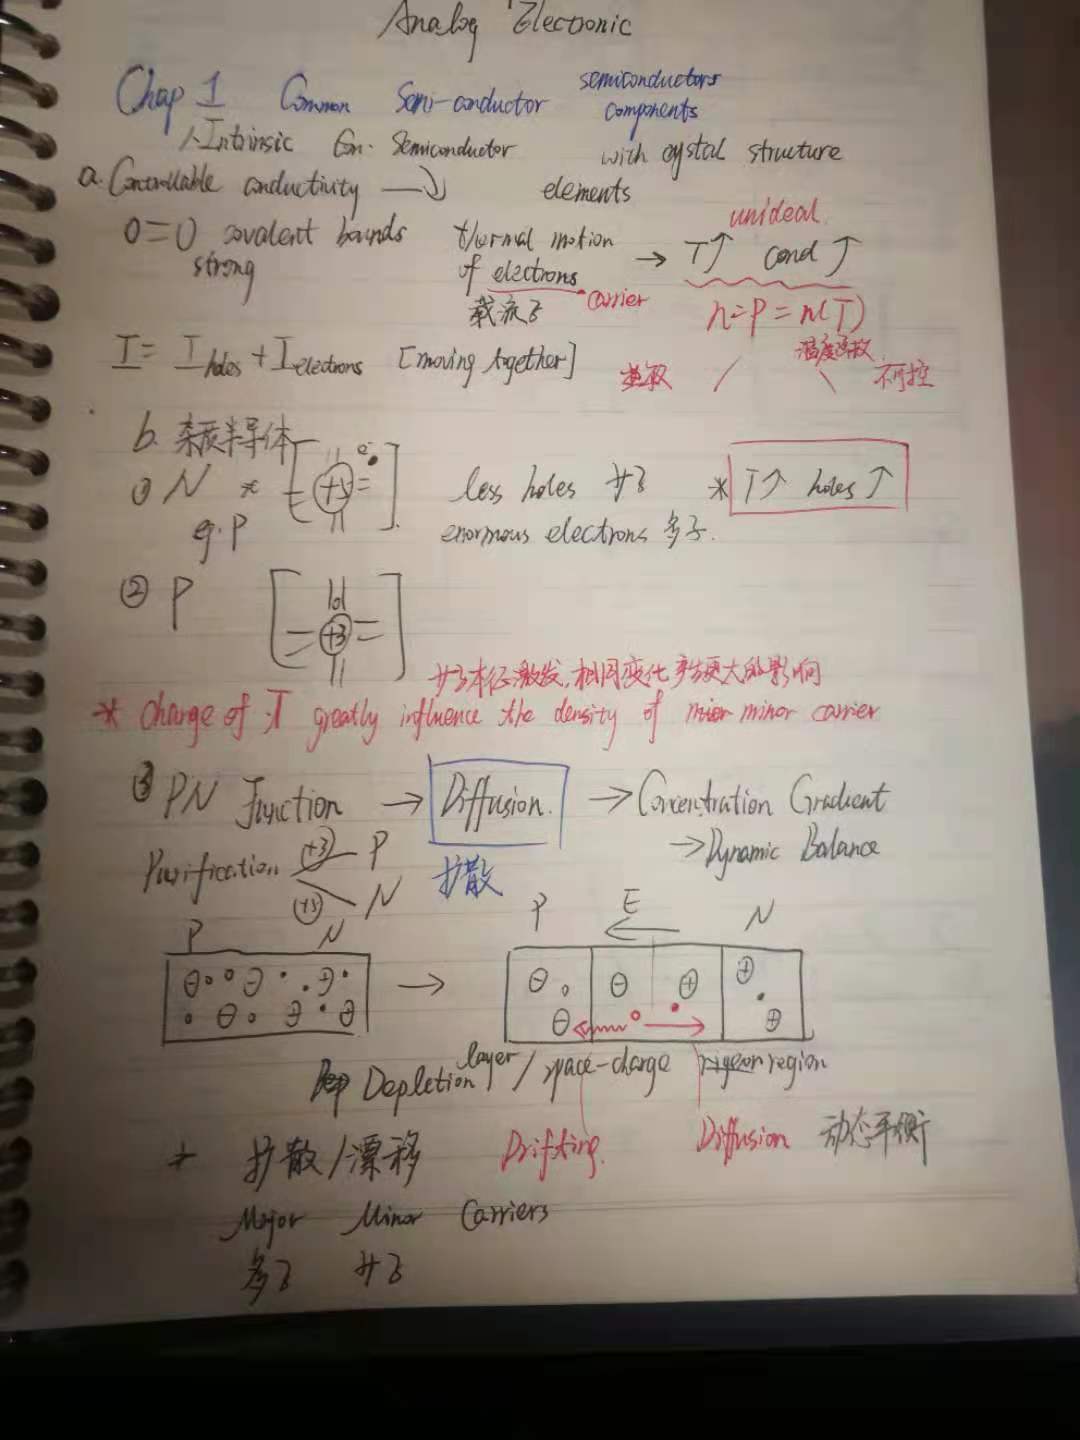 Analog Electronic
Chap 1 Common Semi-conductor semiconductors components
Intrinsic Semiconductor with cystal structure
a. Controllable conductivity elements
covalent bounds thermal motion → T↑ cond ↑ unideal
strong of electrons carrier
载流子 n=P=n(T)
I = I holes + I electrons [moving together] 温度函数 不可控
b. 杂质半导体
① N * +5 e- less holes 少子 * T↑ holes ↑
eg. P enormous electrons 多子.
② P +3
少子本征激发,相同变化产生更大的影响
* Change of T greatly influence the density of minor carrier
③ PN Junction → Diffusion. → Concentration Gradient
→ Dynamic Balance
Purification +3 P 扩散
+5 N
P N → P E N
Depletion layer / space-charge region
* 扩散/漂移 Drifting. Diffusion 动态平衡
Major Minor Carriers
多子 少子